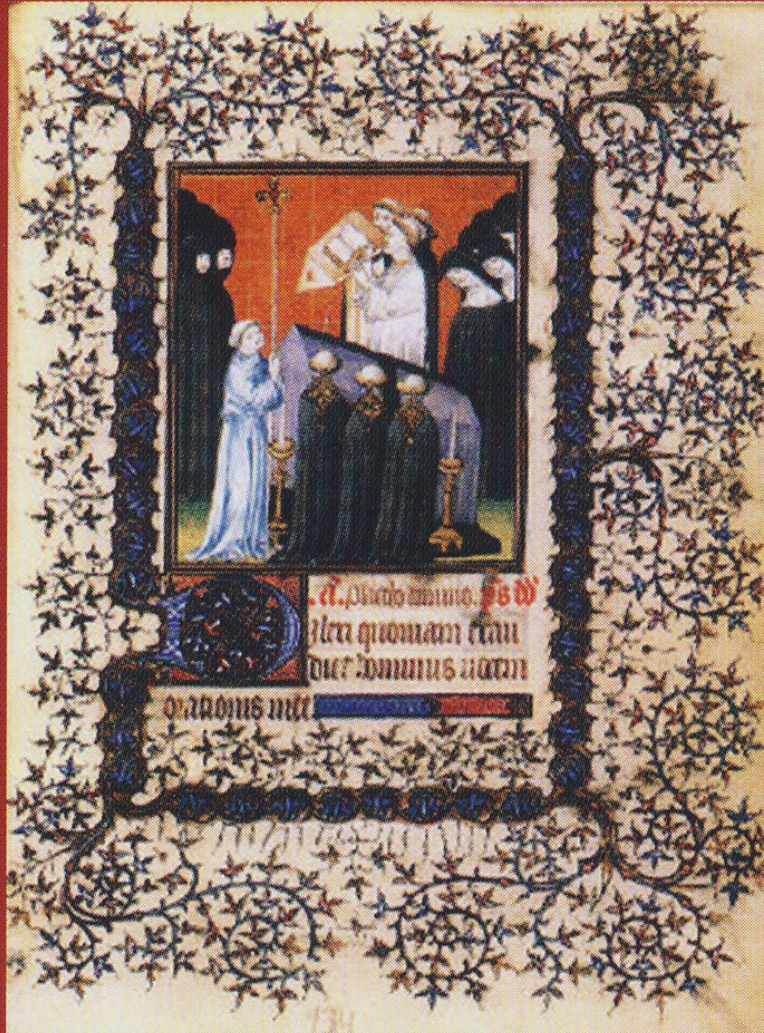 .a. placebo domino. ps dd
Dilexi quoniam exau
diet dominus vocem
orationis mee
134